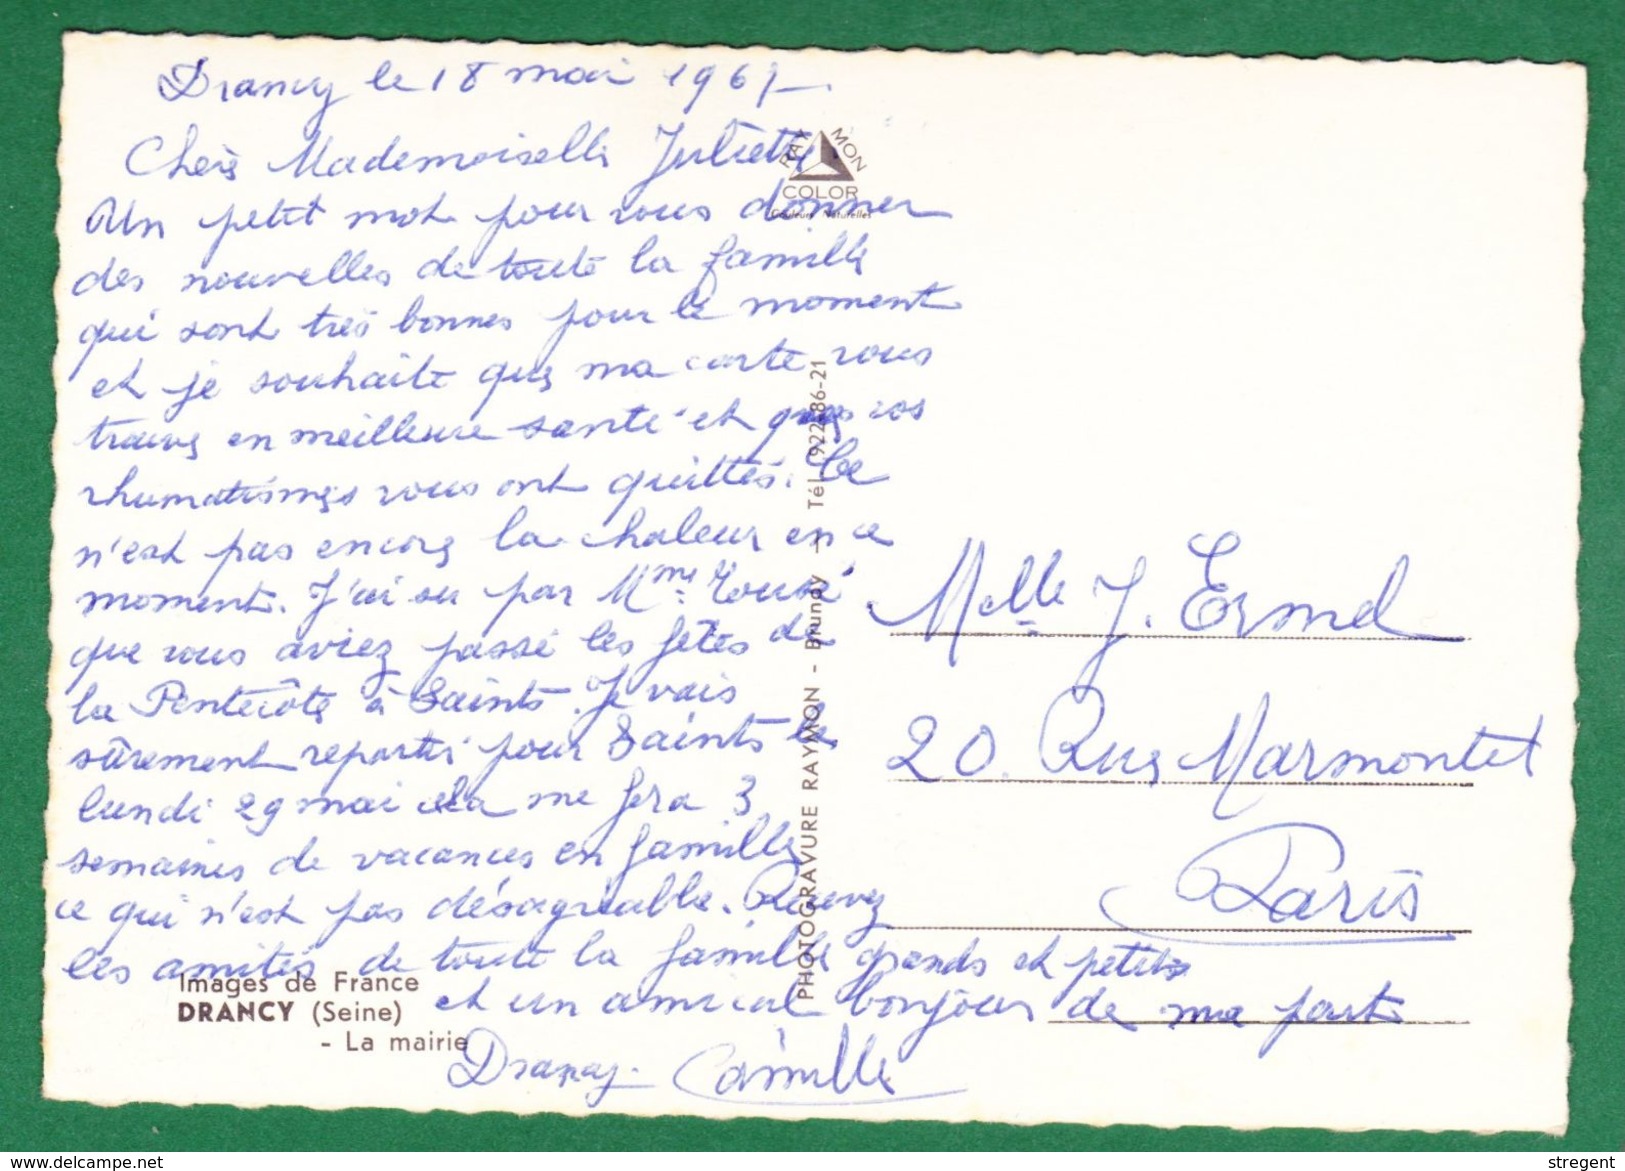 Drancy le 18 mai 1967.
Chère Mademoiselle Juliette,
Un petit mot pour vous donner
des nouvelles de toute la famille
qui sont très bonnes pour le moment
et je souhaite que ma carte vous
trouve en meilleure santé et que vos
rhumatismes vous ont quittés. Ce
n'est pas encore la chaleur en ce
moment. J'ai su par Mme
que vous aviez passé les fêtes de
la Pentecôte à Saints. Je vais
sûrement repartir pour Saints le
lundi 29 mai cela me fera 3
semaines de vacances en famille
ce qui n'est pas désagréable. Recevez
les amitiés de toute la famille grands et petits
et un amical bonjour de ma part
Drancy. Camille
RAYMON
COLOR
Couleurs Naturelles
PHOTOGRAVURE RAYMON - Brunoy - Tél. 922-86-21
Melle J. Ermel
20. Rue Marmontel
Paris
Images de France
DRANCY (Seine)
- La mairie
delcampe.net
stregent